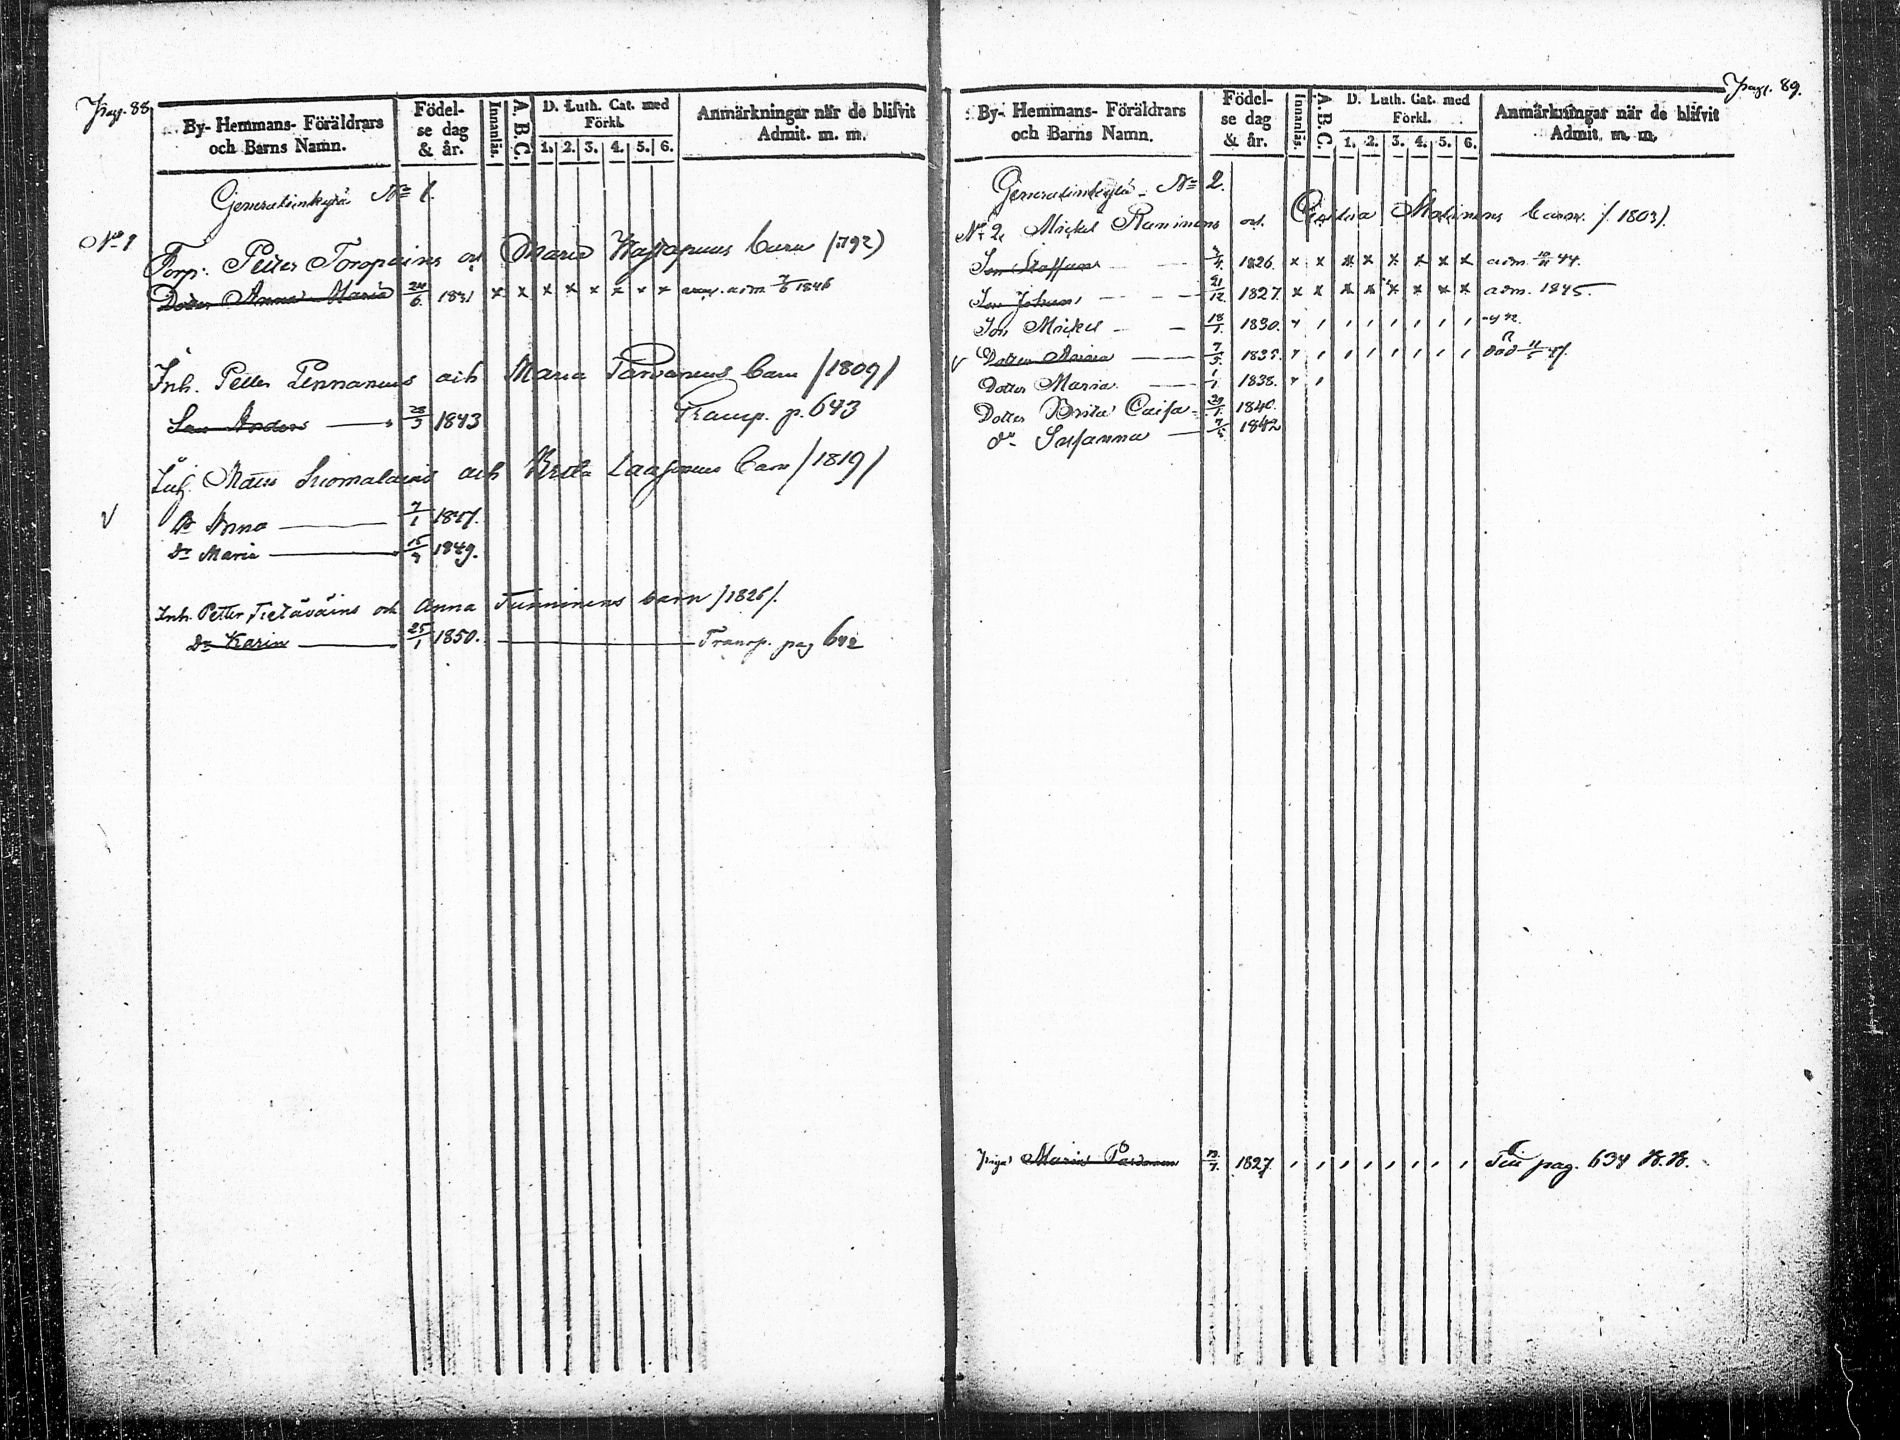 Pag. 88
By- Hemmans- Föräldrars och Barns Namn.
Födel-se dag & år.
Innanläs.
A. B. C.
D. Luth. Cat. med Förkl.
1. 2. 3. 4. 5. 6.
Anmärkningar när de blifvit Admit. m. m.
Generalinkylä No 1.
No 1
Torp: Petter Toropains och Maria barn (1792)
Dotter Anna Maria 24/6 1831 x x x x x x x x adm 1846
Inh. Petter Pennanens och Maria Parvianens barn /1809/
Son Anders 28/3 1843 Transp. p. 643
Inh. Mats Suomalains och Brita Laasonens barn /1819/
V Dr Anna 7/1 1847.
Dr Maria 15/9 1849.
Inh. Petter Tietäväins och Anna Turuninens barn /1826/.
Dr Karin 25/1 1850. Transp. pag 642
Pag. 89.
By- Hemmans- Föräldrars och Barns Namn.
Födel-se dag & år.
Innanläs.
A. B. C.
D. Luth. Cat. med Förkl.
1. 2. 3. 4. 5. 6.
Anmärkningar när de blifvit Admit. m. m.
Generalinkylä No 2.
No 2. Mickel Ranninens och Cecilia Matinens barn /1803/.
Son Staffan 1826 x x x x x x x x adm 44.
Son Johan 21/12 1827 x x x x x x x x adm. 1845.
Son Mickel 18/1 1830.
V Dotter Anna 7/5 1835. död 47.
Dotter Maria 1/1 1838.
Dotter Brita Caisa 29/1 1840.
dr Susanna 1842
Piga Maria Parvianen 1827 Till pag. 634 K.B.